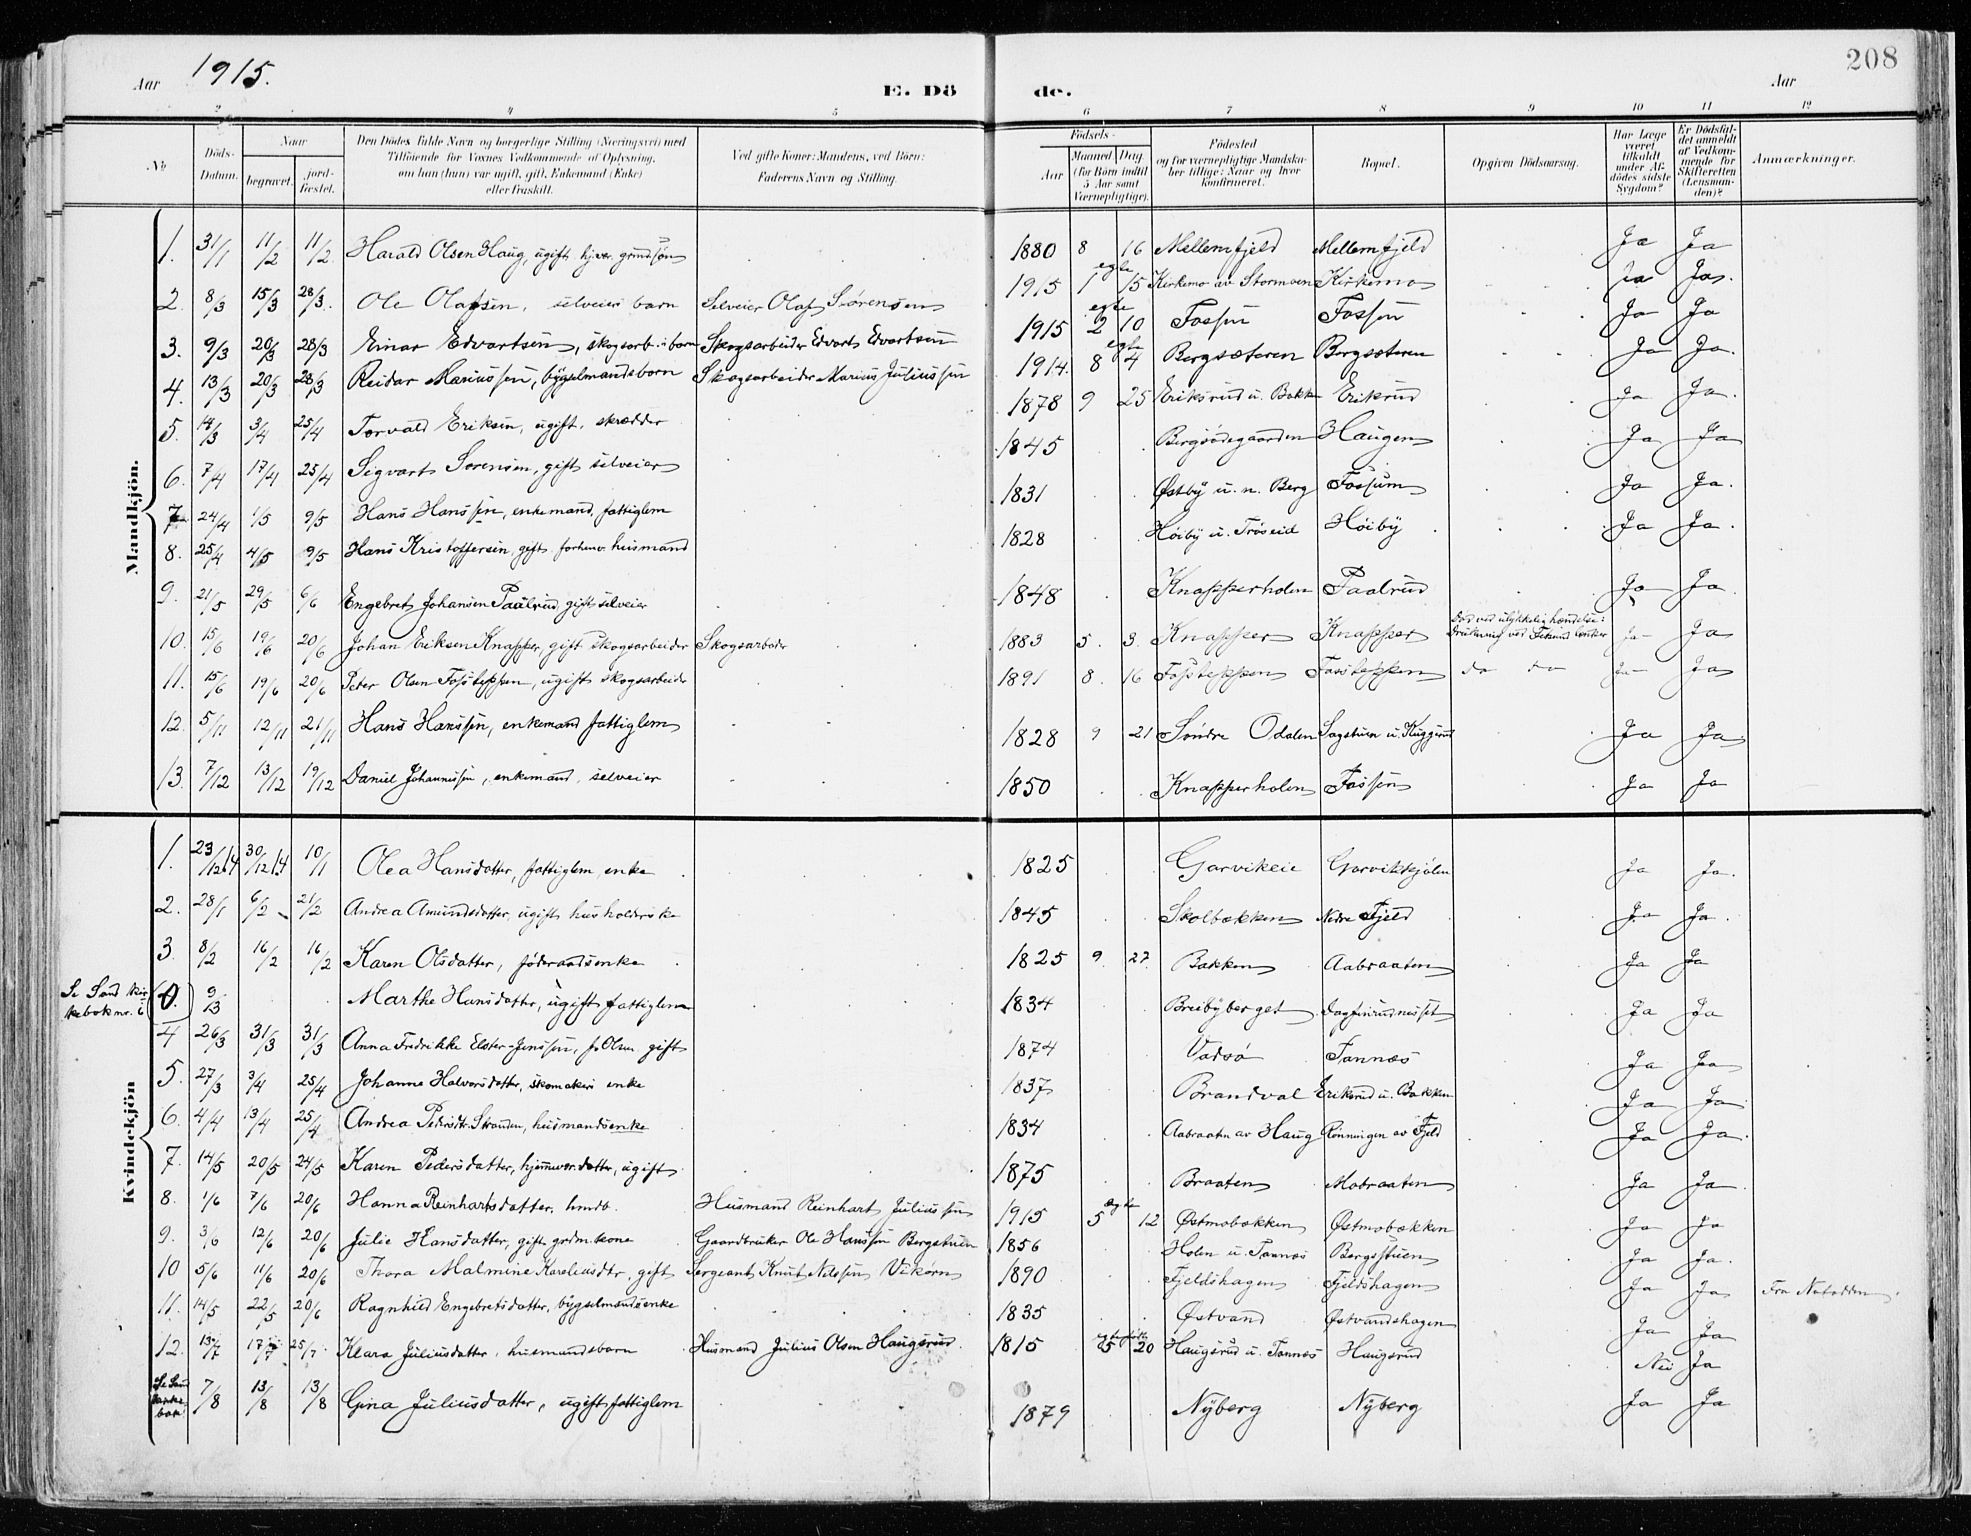 Aar 1915. E. Dö
de. Aar 208
2 4 5 6 7 8 9 10 11 12
No
Döds-Datum.
Naar begravet. jord-fæstet.
Den Dödes fulde Navn og borgerlige Stilling (Næringsvei) med Tilföiende for Voxnes Vedkommende af Oplysning, om han (hun) var ugift, gift, Enkemand (Enke) eller fraskilt.
Ved gifte Koner: Mandens, ved Börn: Faderens Navn og Stilling.
Födsels-
Aar Maaned Dag (for Börn indtil 5 Aar samt Værnepligtige).
Födested og for værnepligtige Mandskaber tillige: Naar og hvor konfirmeret.
Bopæl.
Opgiven Dödsaarsag.
Har Læge været tilkaldt under Afdödes sidste Sygdom?
Er Dödsfaldet anmeldt af Vedkommende for Skifteretten (Lensmanden)?
Anmærkninger.
Mandkjön.
1. 31/1 11/2 11/2 Harald Olsen Haug, ugift 1880 8 16 Mellemfjeld Mellemfjeld Ja Ja
2. 8/3 15/3 28/3. Ole Olafsen, selveiers barn Selveier Olaf Sørensen 1915 egte 1 15 Kirkemo av Stormoen Kirkemo Ja Ja.
3. 9/3 20/3 28/3 Einar Edvartsen, skogsarb. barn Skogsarbeider Edvart Edvartsen 1915 egte 2 10 Fossen Fossen Ja Ja
4. 13/3 20/3 28/3 Reidar Mariussen, bygselmandsbarn Skogsarbeider Marius Juliussen 1914. egte 8 4 Bergsæteren Bergsæteren Ja Ja.
5. 14/3 3/4 25/4 Torvald Eriksen, ugift, skrædder 1878 9 25 Eriksrud u. Bakke Eriksrud Ja Ja.
6. 7/4 17/4 25/4 Sigvart Sørensen, gift selveier 1845 Bergsødegaarden Haugen Ja Ja
7. 24/4 1/5 9/5 Hans Hanssen, enkemand, fattiglem 1831 Østby u. n. Berg Fossum Ja Ja.
8. 25/4 4/5 9/5 Hans Kristoffersen, gift forhenv. husmand 1828 Høiby u. Trøseid Høiby Ja Ja.
9. 21/5 29/5 6/6 Engebret Johansen Paalrud, gift selveier 1848 Knapperholen Paalrud Ja Ja
10. 15/6 19/6 20/6 Johan Eriksen Knapper, gift skogsarbeider Skogsarbeider 1883 5. 3. Knapper Knapper Død ved ulykkelig hændelse: Drukning ved Ja
11. 15/6 19/6 20/6 Peter Olsen Fossteppen, ugift skogsarbeider 1891 8. 16 Fossteppen Fossteppen do do Ja
12. 5/11 12/11 21/11 Hans Hanssen, enkemand fattiglem 1828 9 21 Søndre Odalen Sagstuen u. Kuggerud Ja Ja
13. 7/12 13/12 19/12 Daniel Johannessen, enkemand, selveier 1850 Knapperholen Fossen Ja Ja
Kvindekjön
1. 23/12 14 30/12 14 10/1 Olea Hansdatter, fattiglem, enke 1825 Garvikeie Garvikkjølen Ja Ja.
2. 28/1 6/2 21/2 Andrea Amundsdatter, ugift husholderske 1845 Skolbækken Nedre Fjeld Ja Ja.
3. 8/2 16/2 16/2 Karen Olsdatter, føderaadsenke 1825 9. 27. Bakken Aabraaten Ja Ja
Se Sand kirkebok nr. 6 0. 9/3 Marthe Hansdatter, ugift fattiglem 1834 Breibyberget Ja Ja
4 26/3 31/3 31/3 Anna Fredrikke Elster-Jenssen, f. Olsen gift 1874 Vadsø Tannæs Ja Ja
5. 27/3 3/4 25/4 Johanne Halvorsdatter, skomakers enke 1837 Brandval Eriksrud u. Bakken Ja Ja
6. 4/4 13/4 25/4 Andrea Pedersdtr. Stranden, husmandsenke 1834 Aabraaten av Haug Rønningen av Fjeld Ja Ja.
7. 14/5 20/5 24/5 Karen Pedersdatter, hjemmev. datter, ugift 1875 Braaten Mobraaten Ja Ja.
8. 1/6 7/6 20/6 Hanna Reinhartsdatter, hmdb. Husmand Reinhart Juliussen 1915 ægte 5 12 Østmobækken Østmobækken Ja Ja
9. 3/6 12/6 20/6 Julie Hansdatter, gift, grdm. kone Gaardbruker Ole Hanssen Bergstuen 1856 Holen u. Tannæs Bergsstuen Ja Ja.
10 5/6 11/6 20/6 Thora Malmine Kareliusdtr, gift Sergeant Knut Nilssen Vikørn 1890 Fjeldshagen Fjeldshagen Ja Ja Fra Notodden.
11. 14/5 22/5 20/6 Ragnhild Engebretsdatter, bygselmandsenke 1835 Østvand Østvandshagen Ja Ja
12. 13/7 17/7 25/7 Klara Juliusdatter, husmandsbarn Husmand Julius Olsen Haugsrud 1815 25 20 Haugsrud u. Tannæs Haugsrud Nei Ja
Se Sand kirkebok 7/8 13/8 13/8 Gina Juliusdatter, ugift fattiglem 1879 Nyberg Nyberg Ja Ja